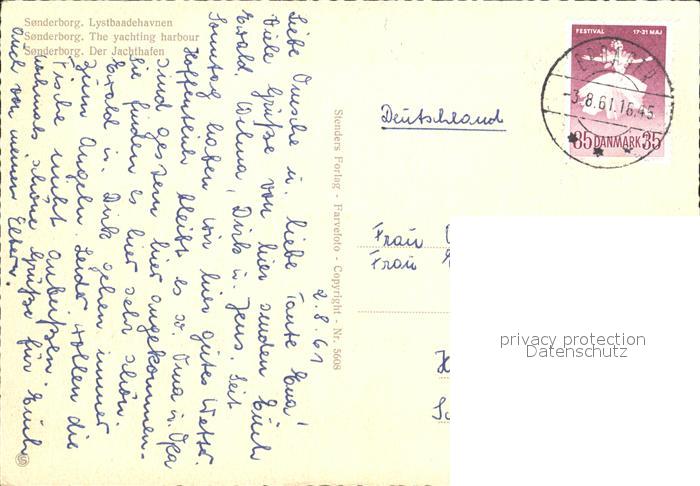 Sønderborg. Lystbaadehavnen
Sønderborg. The yachting harbour
Sønderborg. Der Jachthafen
2.8.61
Liebe Omsche u. liebe Tante Ema!
Viele Grüße von hier senden Euch
Ewald, Wilma, Dirk u. Jens. Seit
Sonntag haben wir hier gutes Wetter.
Hoffentlich bleibt es so. Oma u. Opa
sind gestern hier angekommen.
Sie finden es hier sehr schön.
Ewald u. Dirk gehen immer
zum Angeln. Leider wollen die
Fische nicht anbeißen.
Nochmals schöne Grüße für Euch
auch von meinen Eltern.
Stenders Forlag - Farvefoto - Copyright - Nr. 5608
FESTIVAL 17-31 MAJ
35 DANMARK 35
-3.8.61.16.45
Deutschland
Frau
Frau
privacy protection
Datenschutz